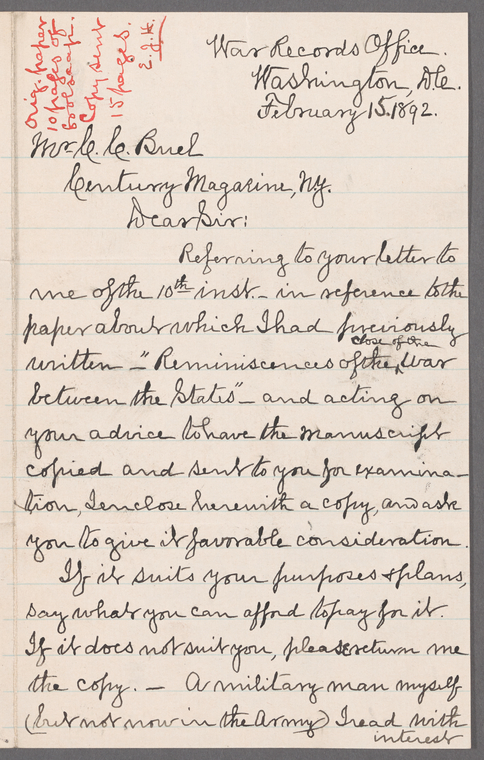 Orig. paper
10 pages of
foolscap.
Copy sent
15 pages.
E.J.K.
War Records Office.
Washington, D.C.
February 15. 1892.
Mr. C. C. Buel
Century Magazine, N.Y.
Dear Sir:
Referring to your letter to
me of the 10th inst. - in reference to the
paper about which I had previously
close of the
written - "Reminiscences of the ‸ War
between the States" - and acting on
your advice to have the manuscript
copied and sent to you for examina-
tion, I enclose herewith a copy, and ask
you to give it favorable consideration.
If it suits your purposes & plans,
say what you can afford to pay for it.
If it does not suit you, please return me
the copy. - A military man myself
(but not now in the Army) I read with
interest